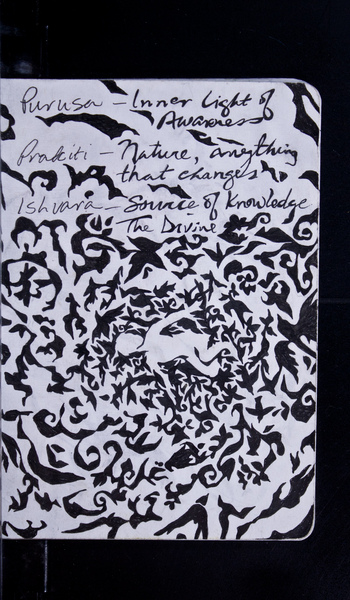 Purusa – Inner Light of
Awareness
Prakiti – Nature, anything
that changes
Ishvara – Source of Knowledge
The Divine